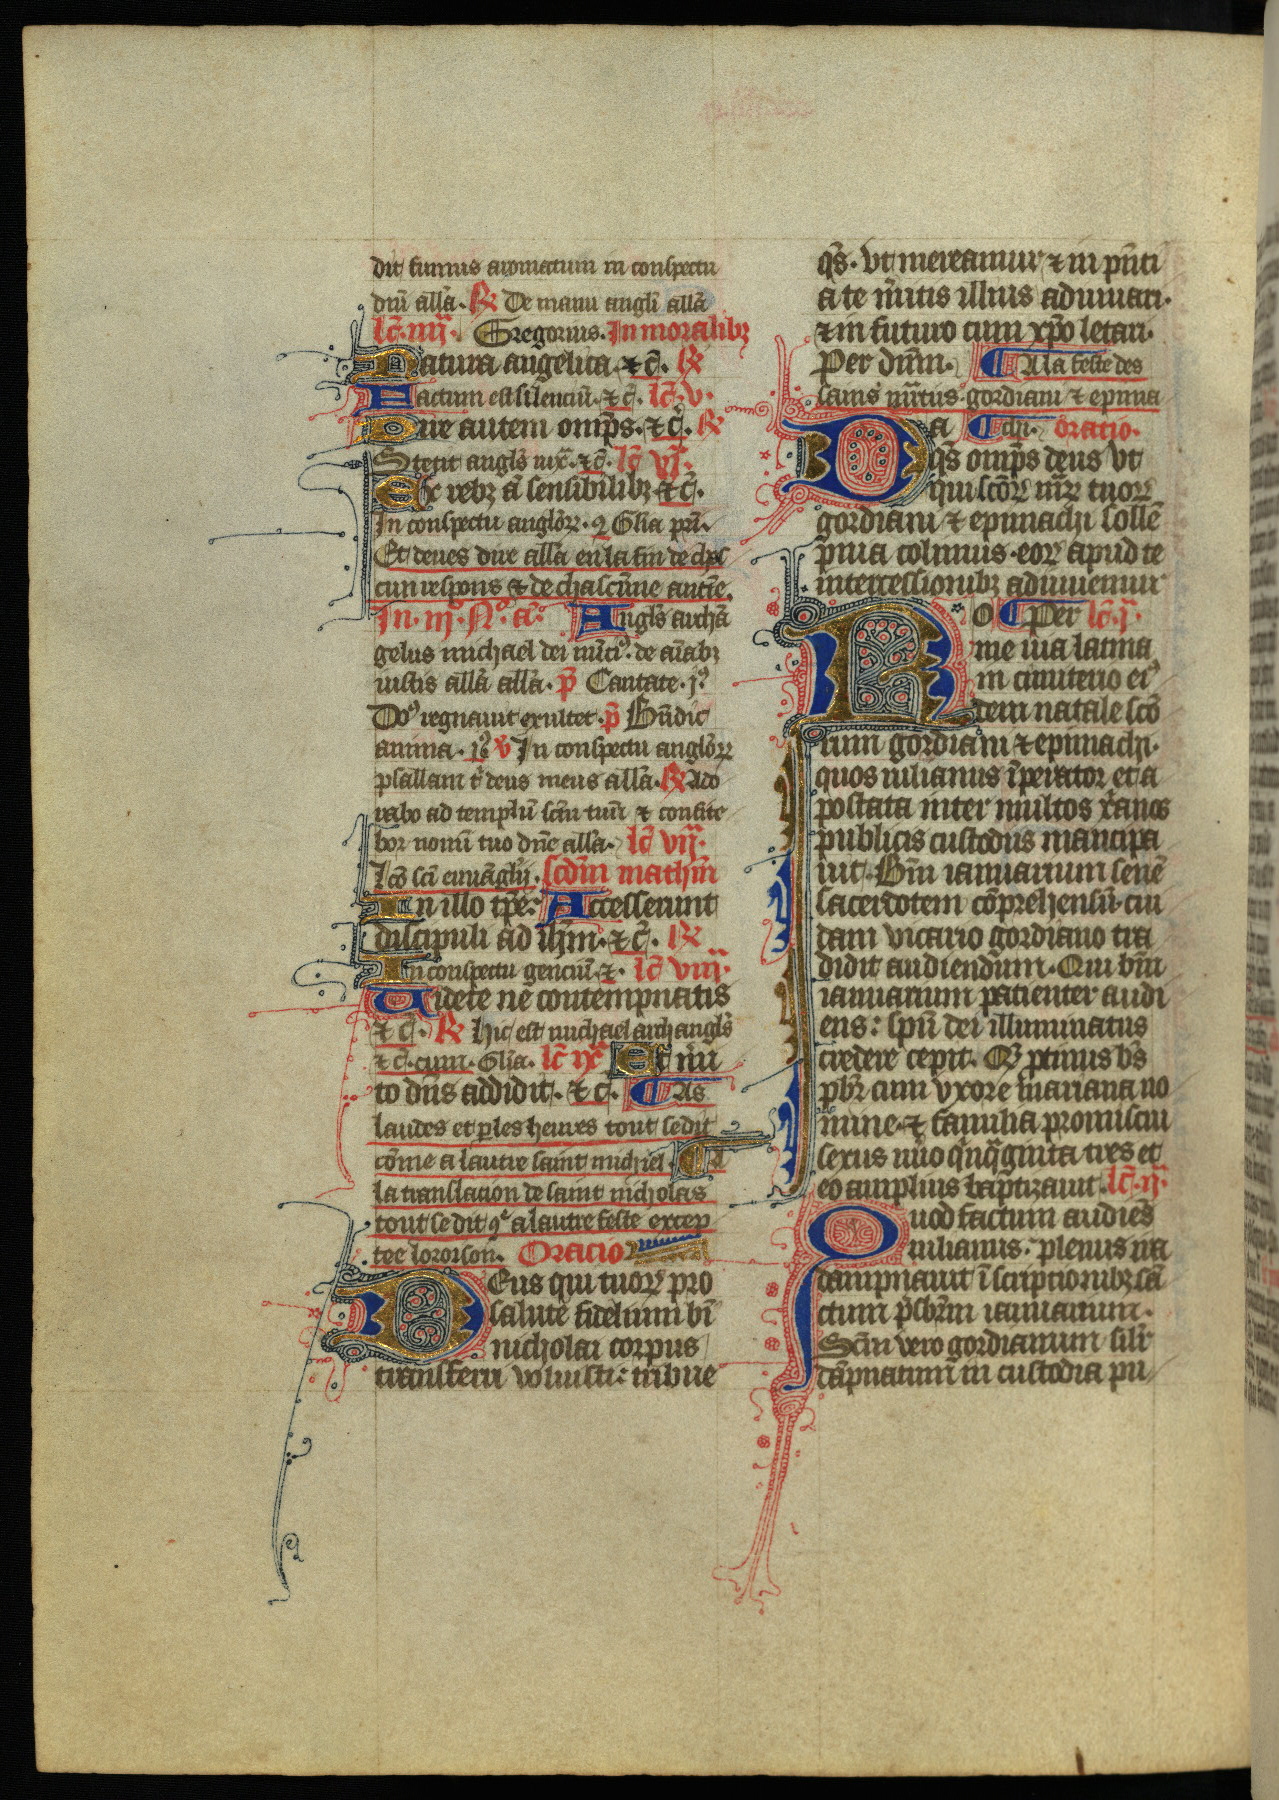 dit fumus aromatum in conspectu
dn̄i all̄a. ℟ De manu angl̄i all̄a
lc̄. iiij. Gregorius. In moralibꝫ
Natura angelica. ⁊ c̄. ℟
Factum est silenciū. ⁊ c̄. lc̄. v.
Due autem omp̄s. ⁊ c̄. ℟
Stetit angl̄s iux̄. ⁊ c̄. lc̄ vj.
Ex rebꝫ a sensibilibꝫ ⁊ c̄.
In conspectu anglōꝝ. ⁊ Gl̄ia pr̄i.
Et deues dire all̄a en la fin de chꝰ
cun respons ⁊ de chascūne antiē.
In. iij. N. a. Angl̄s archā
gelus michael dei nūciꝰ. de aīabꝫ
iustis all̄a all̄a. p̄ Cantate. j.
Dn̄s regnauit exultet. p̄ Bn̄dic
anima. v In conspectu anglōꝝ
psallam t̄ deus meus all̄a. ℟ Ado
rabo ad templū scm̄ tuū ⁊ confite
bor nomī tuo dn̄e all̄a. lc̄ vij.
Lcō sc̄i euuāglij. scd̄m math̄m
In illo tp̄e. Accesserunt
discipuli ad ih̄m. ⁊ c̄. ℟
In conspectu genciū ⁊. lc̄ viij.
Videte ne contempnatis
⁊ c̄. ℟ Hic est michael archangl̄s
⁊ c̄. cum. Gl̄ia. lc̄ ix. Et
to dn̄s addidit. ⁊ c̄. ¶ As
laudes et p̱ les heures tout se dit
cōme a lautre saint michiel. ¶ A
la translacion de saint nicholas
tout se dit 9ͤ a lautre feste excep
tee lororson. Oracio
Deus qui tuoꝝ pro
salute fidelium bī
nicholai corpus
transferri voluisti: tribue
qs̄. vt mereamur ⁊ in pn̄ti
a te m̄itis illius adiuuari.
⁊ in futuro cum xp̄o letari.
Per dn̄m. ¶ A la feste des
sains mr̄tirs gordiani ⁊ epima
Da ¶ chi. Oratio.
qs̄ omp̄s deus vt
qui scōꝝ mr̄ꝝ tuoꝝ
gordiani ⁊ epimachi sollē
pnia colimus. eoꝝ apud te
intercessionibꝫ adiuuemur
Ro ¶ Per lc̄. j.
me uia latina
in cimiterio eiꝰ
dem natale scō
rum gordiani ⁊ epimachi.
quos iulianus īperator et a
postata inter multos xp̄anos
publicis custodiis mancipa
uit. Bm̄ ianuarium senē
sacerdotem cōprehensū. cui
dam vicario gordiano tra
didit audiendum. Qui bm̄
ianuarium patienter audi
ens: spū dei illuminatus
credere cepit. Qē ptimus bs̄
pbr̄ cum vxore mariana no
mine. ⁊ familia promiscui
sexus uiro q̄nq̄ginta tres et
eo amplius baptizauit. lc̄. ij.
Quod factum audiēs
iulianus. plenus ira
dampnauit ī scriptionibꝫ sā
ctum pr̄sbrm̄ ianuarium.
Scm̄ vero gordianum sili
dāpnatum in custodia pu